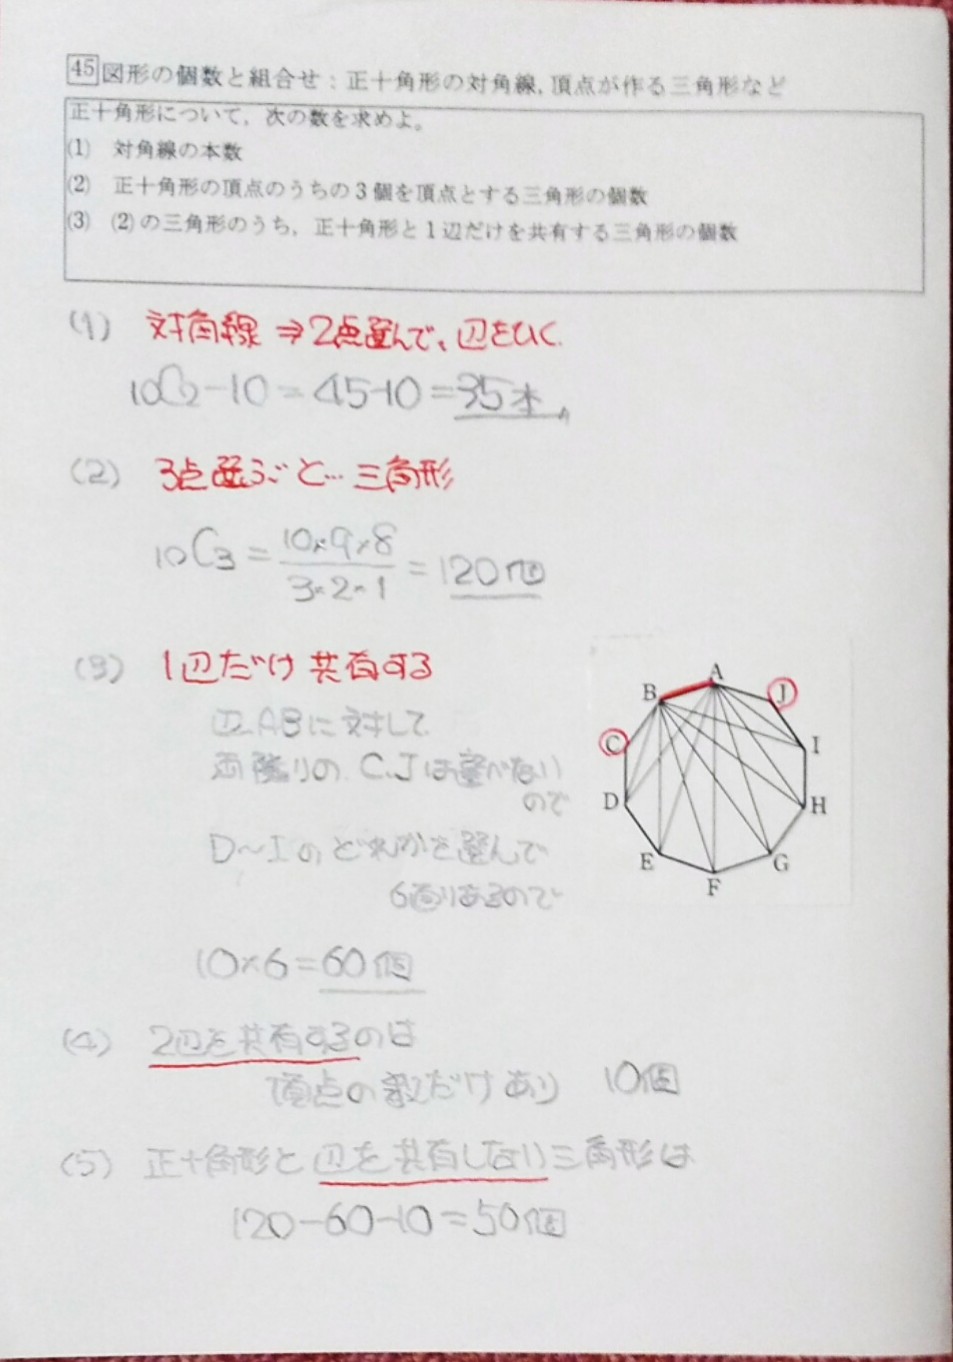 45 図形の個数と組合せ：正十角形の対角線，頂点が作る三角形など
正十角形について，次の数を求めよ。
(1) 対角線の本数
(2) 正十角形の頂点のうちの3個を頂点とする三角形の個数
(3) (2)の三角形のうち，正十角形と1辺だけを共有する三角形の個数
(1) 対角線 ⇒ 2点選んで、辺をひく.
₁₀C₂-10 = 45-10 = 35本
(2) 3点選ぶごと… 三角形
₁₀C₃ = 10×9×8 / 3×2×1 = 120個
(3) 1辺だけ共有する
辺ABに対して
両隣りの C,Jは選べない
ので
D〜Iのどれかを選んで
6通りあるので
10×6=60個
A
B
J
C
I
D
H
E
G
F
(4) 2辺を共有するのは
頂点の数だけあり 10個
(5) 正十角形と辺を共有しない三角形は
120-60-10=50個